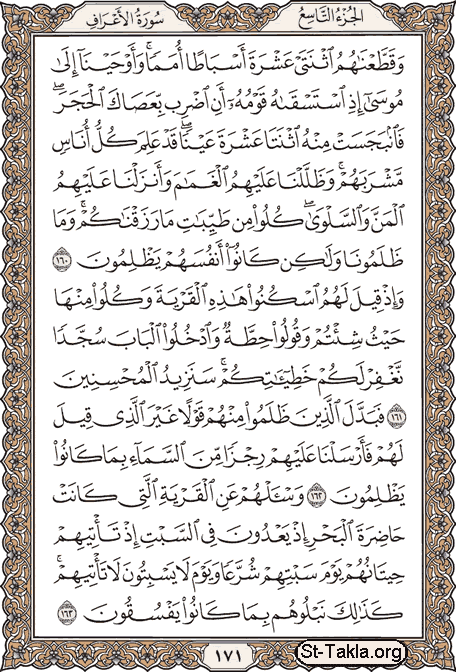 الجزء التاسع
سورة الأعراف
وَقَطَّعْنَٰهُمُ ٱثْنَتَىْ عَشْرَةَ أَسْبَاطًا أُمَمًا ۚ وَأَوْحَيْنَآ إِلَىٰ
مُوسَىٰٓ إِذِ ٱسْتَسْقَىٰهُ قَوْمُهُۥٓ أَنِ ٱضْرِب بِّعَصَاكَ ٱلْحَجَرَ ۖ
فَٱنۢبَجَسَتْ مِنْهُ ٱثْنَتَا عَشْرَةَ عَيْنًا ۖ قَدْ عَلِمَ كُلُّ أُنَاسٍ
مَّشْرَبَهُمْ ۚ وَظَلَّلْنَا عَلَيْهِمُ ٱلْغَمَٰمَ وَأَنزَلْنَا عَلَيْهِمُ
ٱلْمَنَّ وَٱلسَّلْوَىٰ ۖ كُلُوا۟ مِن طَيِّبَٰتِ مَا رَزَقْنَٰكُمْ ۚ وَمَا
ظَلَمُونَا وَلَٰكِن كَانُوٓا۟ أَنفُسَهُمْ يَظْلِمُونَ ١٦٠
وَإِذْ قِيلَ لَهُمُ ٱسْكُنُوا۟ هَٰذِهِ ٱلْقَرْيَةَ وَكُلُوا۟ مِنْهَا
حَيْثُ شِئْتُمْ وَقُولُوا۟ حِطَّةٌ وَٱدْخُلُوا۟ ٱلْبَابَ سُجَّدًا
نَّغْفِرْ لَكُمْ خَطِيٓـَٰٔتِكُمْ ۚ سَنَزِيدُ ٱلْمُحْسِنِينَ
١٦١ فَبَدَّلَ ٱلَّذِينَ ظَلَمُوا۟ مِنْهُمْ قَوْلًا غَيْرَ ٱلَّذِى قِيلَ
لَهُمْ فَأَرْسَلْنَا عَلَيْهِمْ رِجْزًا مِّنَ ٱلسَّمَآءِ بِمَا كَانُوا۟
يَظْلِمُونَ ١٦٢ وَسْـَٔلْهُمْ عَنِ ٱلْقَرْيَةِ ٱلَّتِى كَانَتْ
حَاضِرَةَ ٱلْبَحْرِ إِذْ يَعْدُونَ فِى ٱلسَّبْتِ إِذْ تَأْتِيهِمْ
حِيتَانُهُمْ يَوْمَ سَبْتِهِمْ شُرَّعًا وَيَوْمَ لَا يَسْبِتُونَ ۙ لَا تَأْتِيهِمْ ۚ
كَذَٰلِكَ نَبْلُوهُم بِمَا كَانُوا۟ يَفْسُقُونَ ١٦٣
١٧١
St-Takla.org